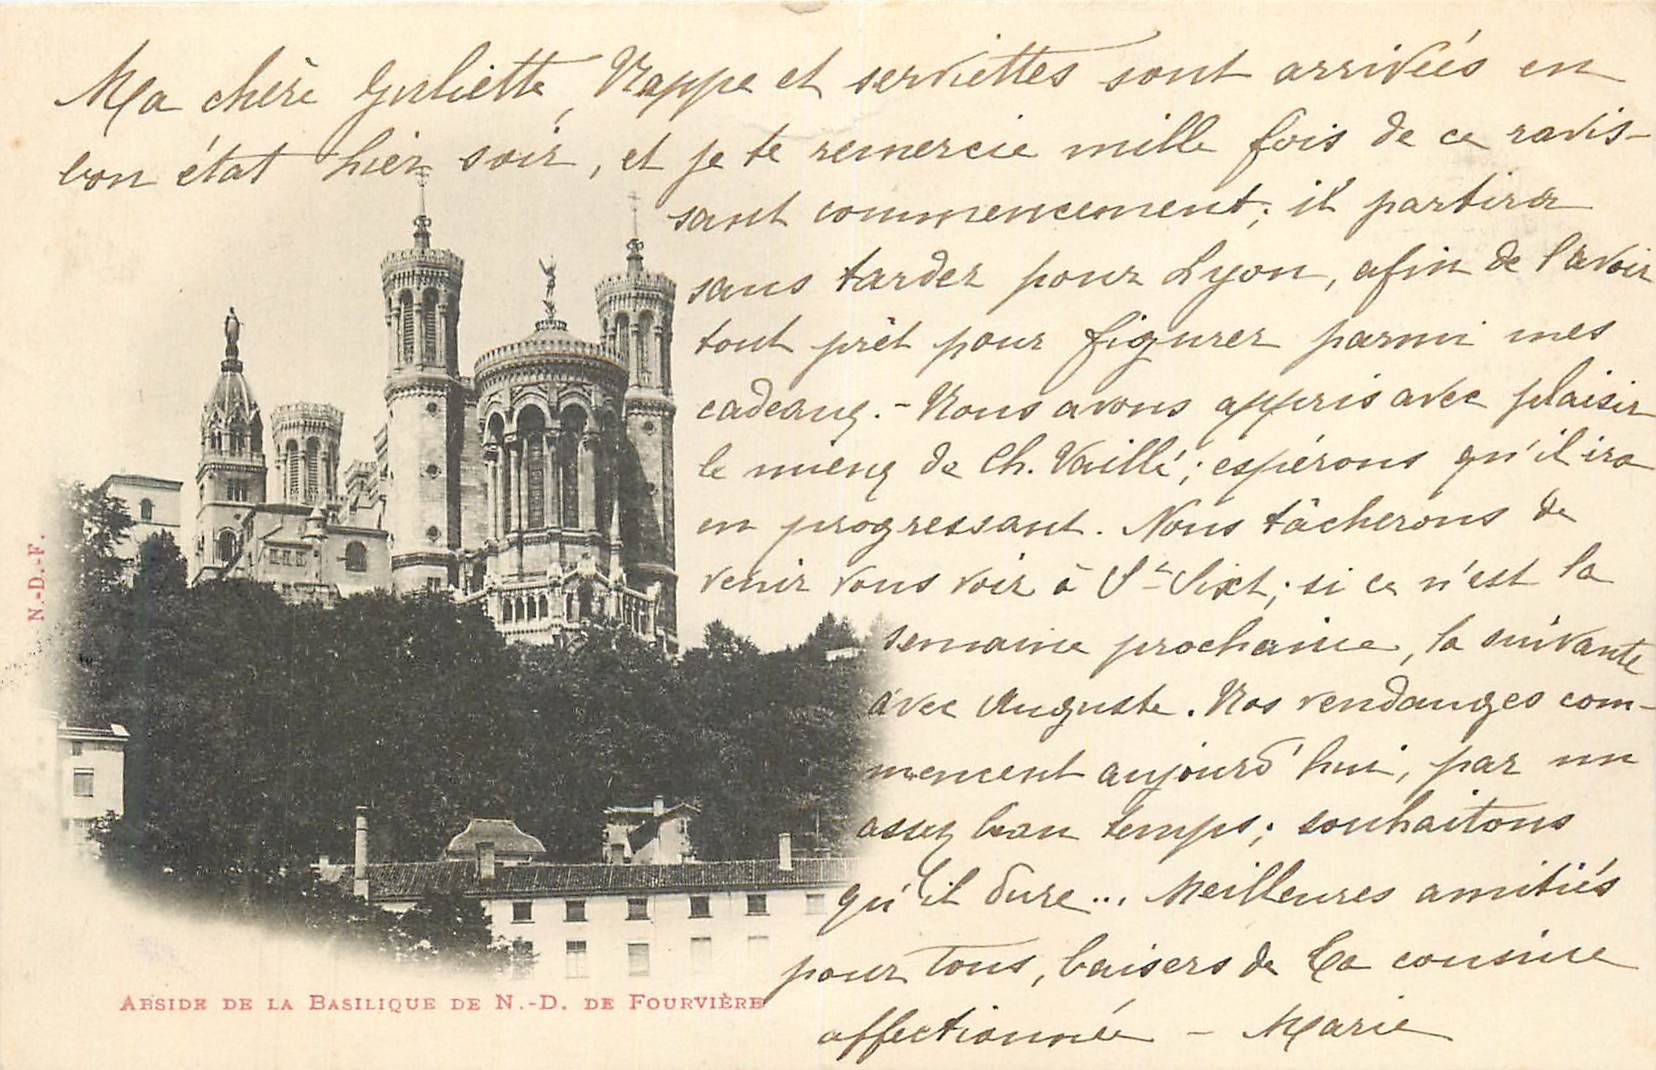 Ma chère Juliette, Nappe et serviettes sont arrivées en
bon état hier soir, et je te remercie mille fois de ce ravis-
sant commencement; il partira
sans tarder pour Lyon, afin de l'avoir
tout prêt pour figurer parmi mes
cadeaux. - Nous avons appris avec plaisir
le mieux de Ch. Vaillé; espérons qu'il ira
en progressant. Nous tâcherons de
venir vous voir à St Sixt; si ce n'est la
semaine prochaine, la suivante
avec Auguste. Nos vendanges com-
mencent aujourd'hui, par un
assez beau temps; souhaitons
qu'il dure... Meilleures amitiés
pour tous, baisers de ta cousine
affectionnée - Marie
N.-D.-F.
ABSIDE DE LA BASILIQUE DE N.-D. DE FOURVIÈRE